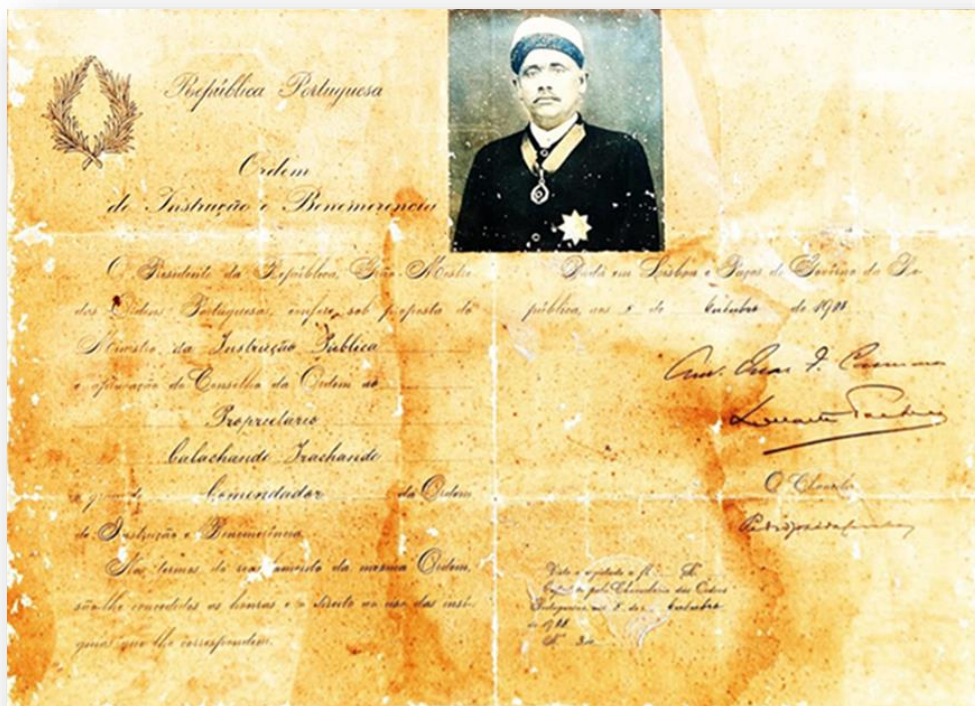 República Portuguesa
Ordem
de Instrução e Benemerencia
O Presidente da República, Grão-Mestre
das Ordens Portuguesas, confere, sob proposta do
Ministro da Instrucção Publica
e aprovação do Conselho da Ordem ao
Proprietario
Calachande Irachande
o grau de Comendador da Ordem
de Instrução e Benemerência.
Nos termos do regulamento da mesma Ordem,
são-lhe concedidas as honras e o direito ao uso das insí-
gnias que lhe correspondem.
Dada em Lisboa e Paços do Govêrno da Re-
pública, aos 8 de Outubro de
O Chanceler
Visto e registado a fl.
pela Chancelaria das Ordens
Portuguesas aos 8 de Outubro
de